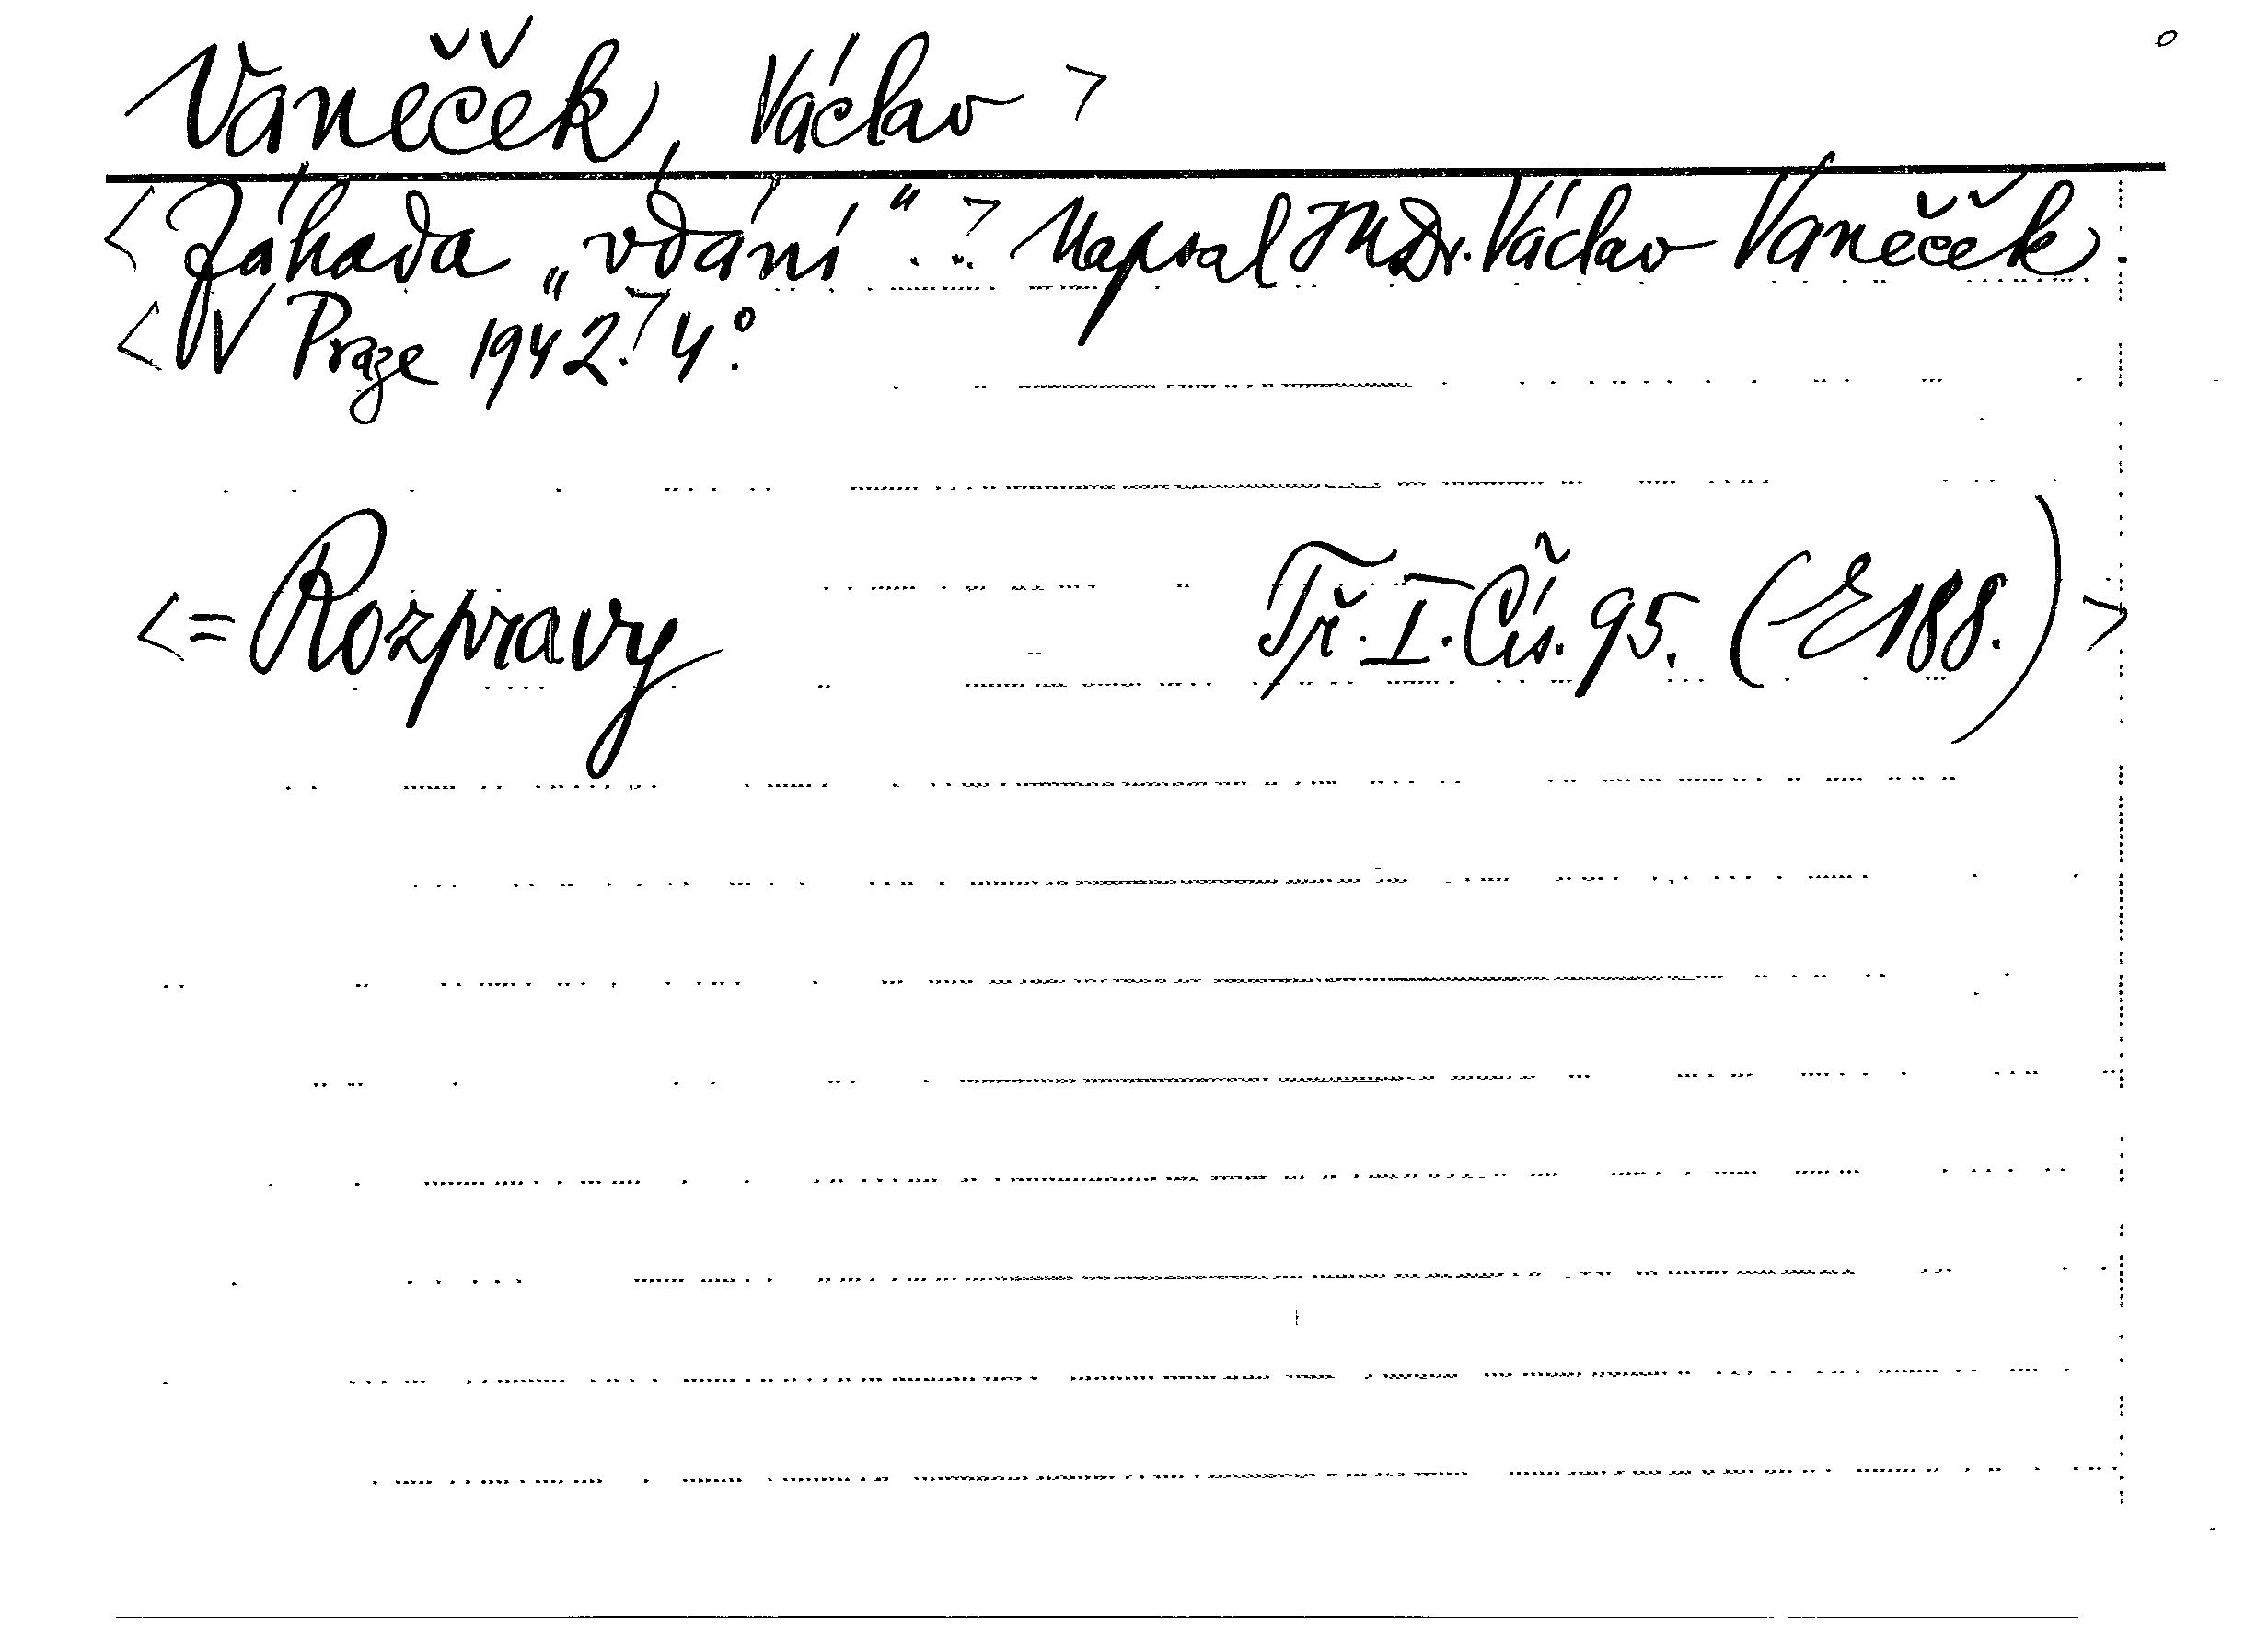 Vaněček, Václav >
< Záhada „vdání“. > Napsal JUDr. Václav Vaněček.
< V Praze 1942. > 4°.
< = Rozpravy Tř. I. Čís. 95. (E 188.) >